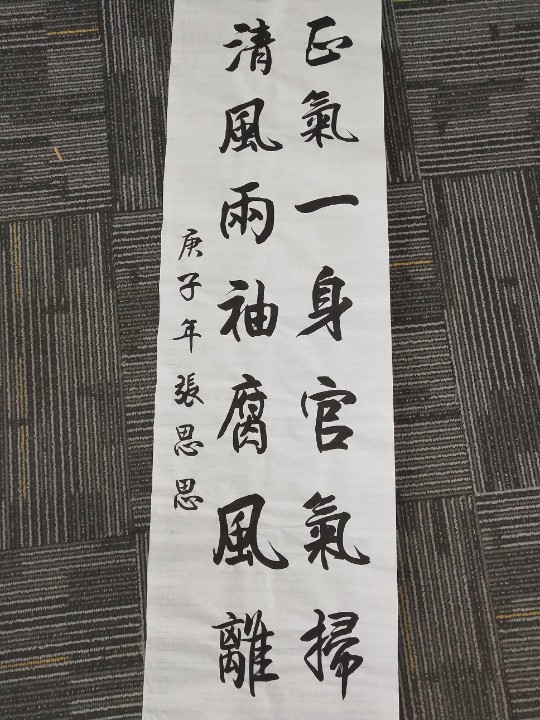 正氣一身官氣掃
清風兩袖腐風離
庚子年張思思